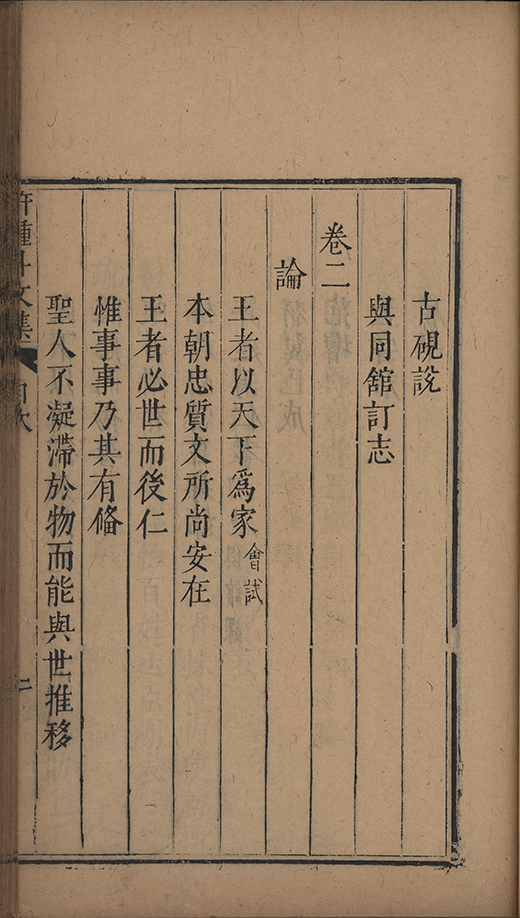 古硯說
與同舘訂志
卷二
論
王者以天下爲家會試
本朝忠質文所尚安在
王者必世而後仁
惟事事乃其有備
聖人不凝滯於物而能與世推移
許鍾斗文集 目次 二